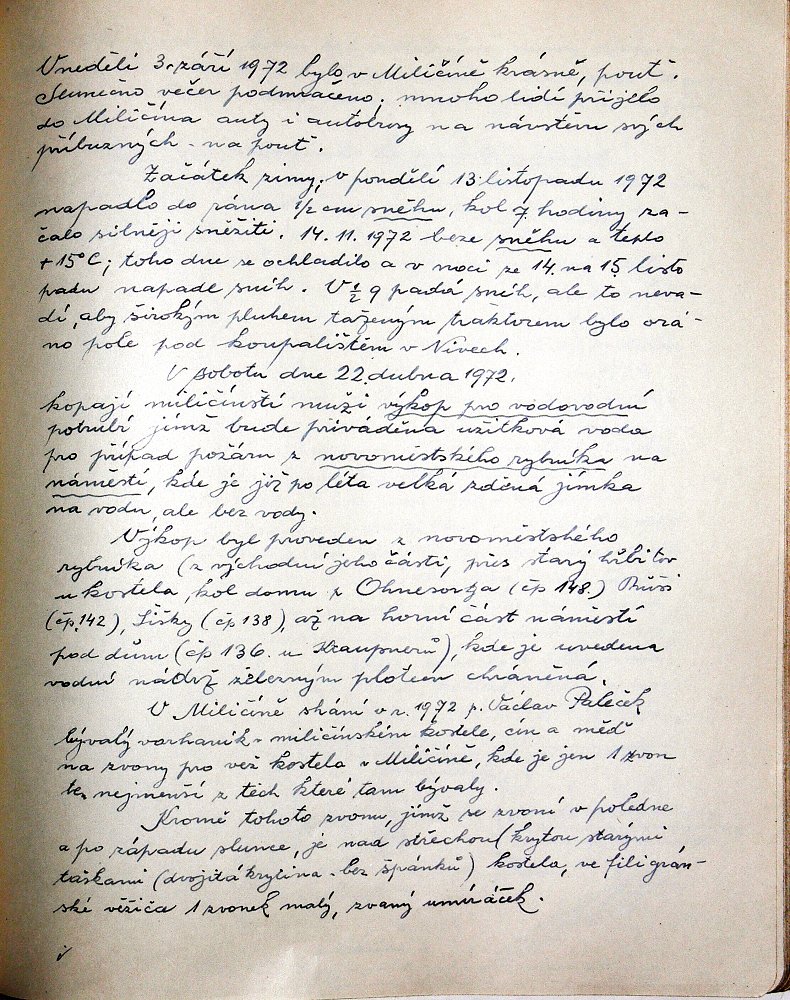 V neděli 3. září 1972 bylo v Miličíně krásně, pouť.
Slunečno večer podmračeno; mnoho lidí přijelo
do Miličína auty i autobusy na návštěvu svých
příbuzných - na pouť.
Začátek zimy; v pondělí 13. listopadu 1972
napadlo do rána 1/2 cm sněhu, kol 7. hodiny za-
čalo silněji sněžiti. 14. 11. 1972 beze sněhu a teplo
+ 15°C; toho dne se ochladilo a v noci ze 14. na 15. listo
padu napade sníh. V 1/2 9 padá sníh, ale to neva-
dí, aby širokým pluhem taženým traktorem bylo orá-
no pole pod koupalištěm v Nivech.
V sobotu dne 22. dubna 1972.
kopají miličínští muži výkop pro vodovodní
potrubí jímž bude přiváděna užitková voda
pro případ požáru z novoměstského rybníka na
náměstí, kde je již po léta velká zděná jímka
na vodu, ale bez vody.
Výkop byl proveden z novoměstského
rybníka (z východní jeho části, přes starý hřbitov
u kostela, kol domu z Ohnesortja (čp 148.)
(čp. 142), Šišky (čp 138), až na horní část náměstí
pod dům (čp 136. u Kraupnerů), kde je uvedena
vodní nádrž železným plotem chráněná.
V Miličíně shání v r. 1972 p. Václav Paleček
bývalý varhaník v miličínském kostele, cín a měď
na zvony pro věž kostela v Miličíně, kde je jen 1 zvon
ten nejmenší z těch které tam bývaly.
Kromě tohoto zvonu, jímž se zvoní v poledne
a po západu slunce, je nad střechou (krytou starými
taškami (dvojitá krytina - bez špánků) kostela, ve filigrán-
ské věžičce 1 zvonek malý, zvaný umíráček.